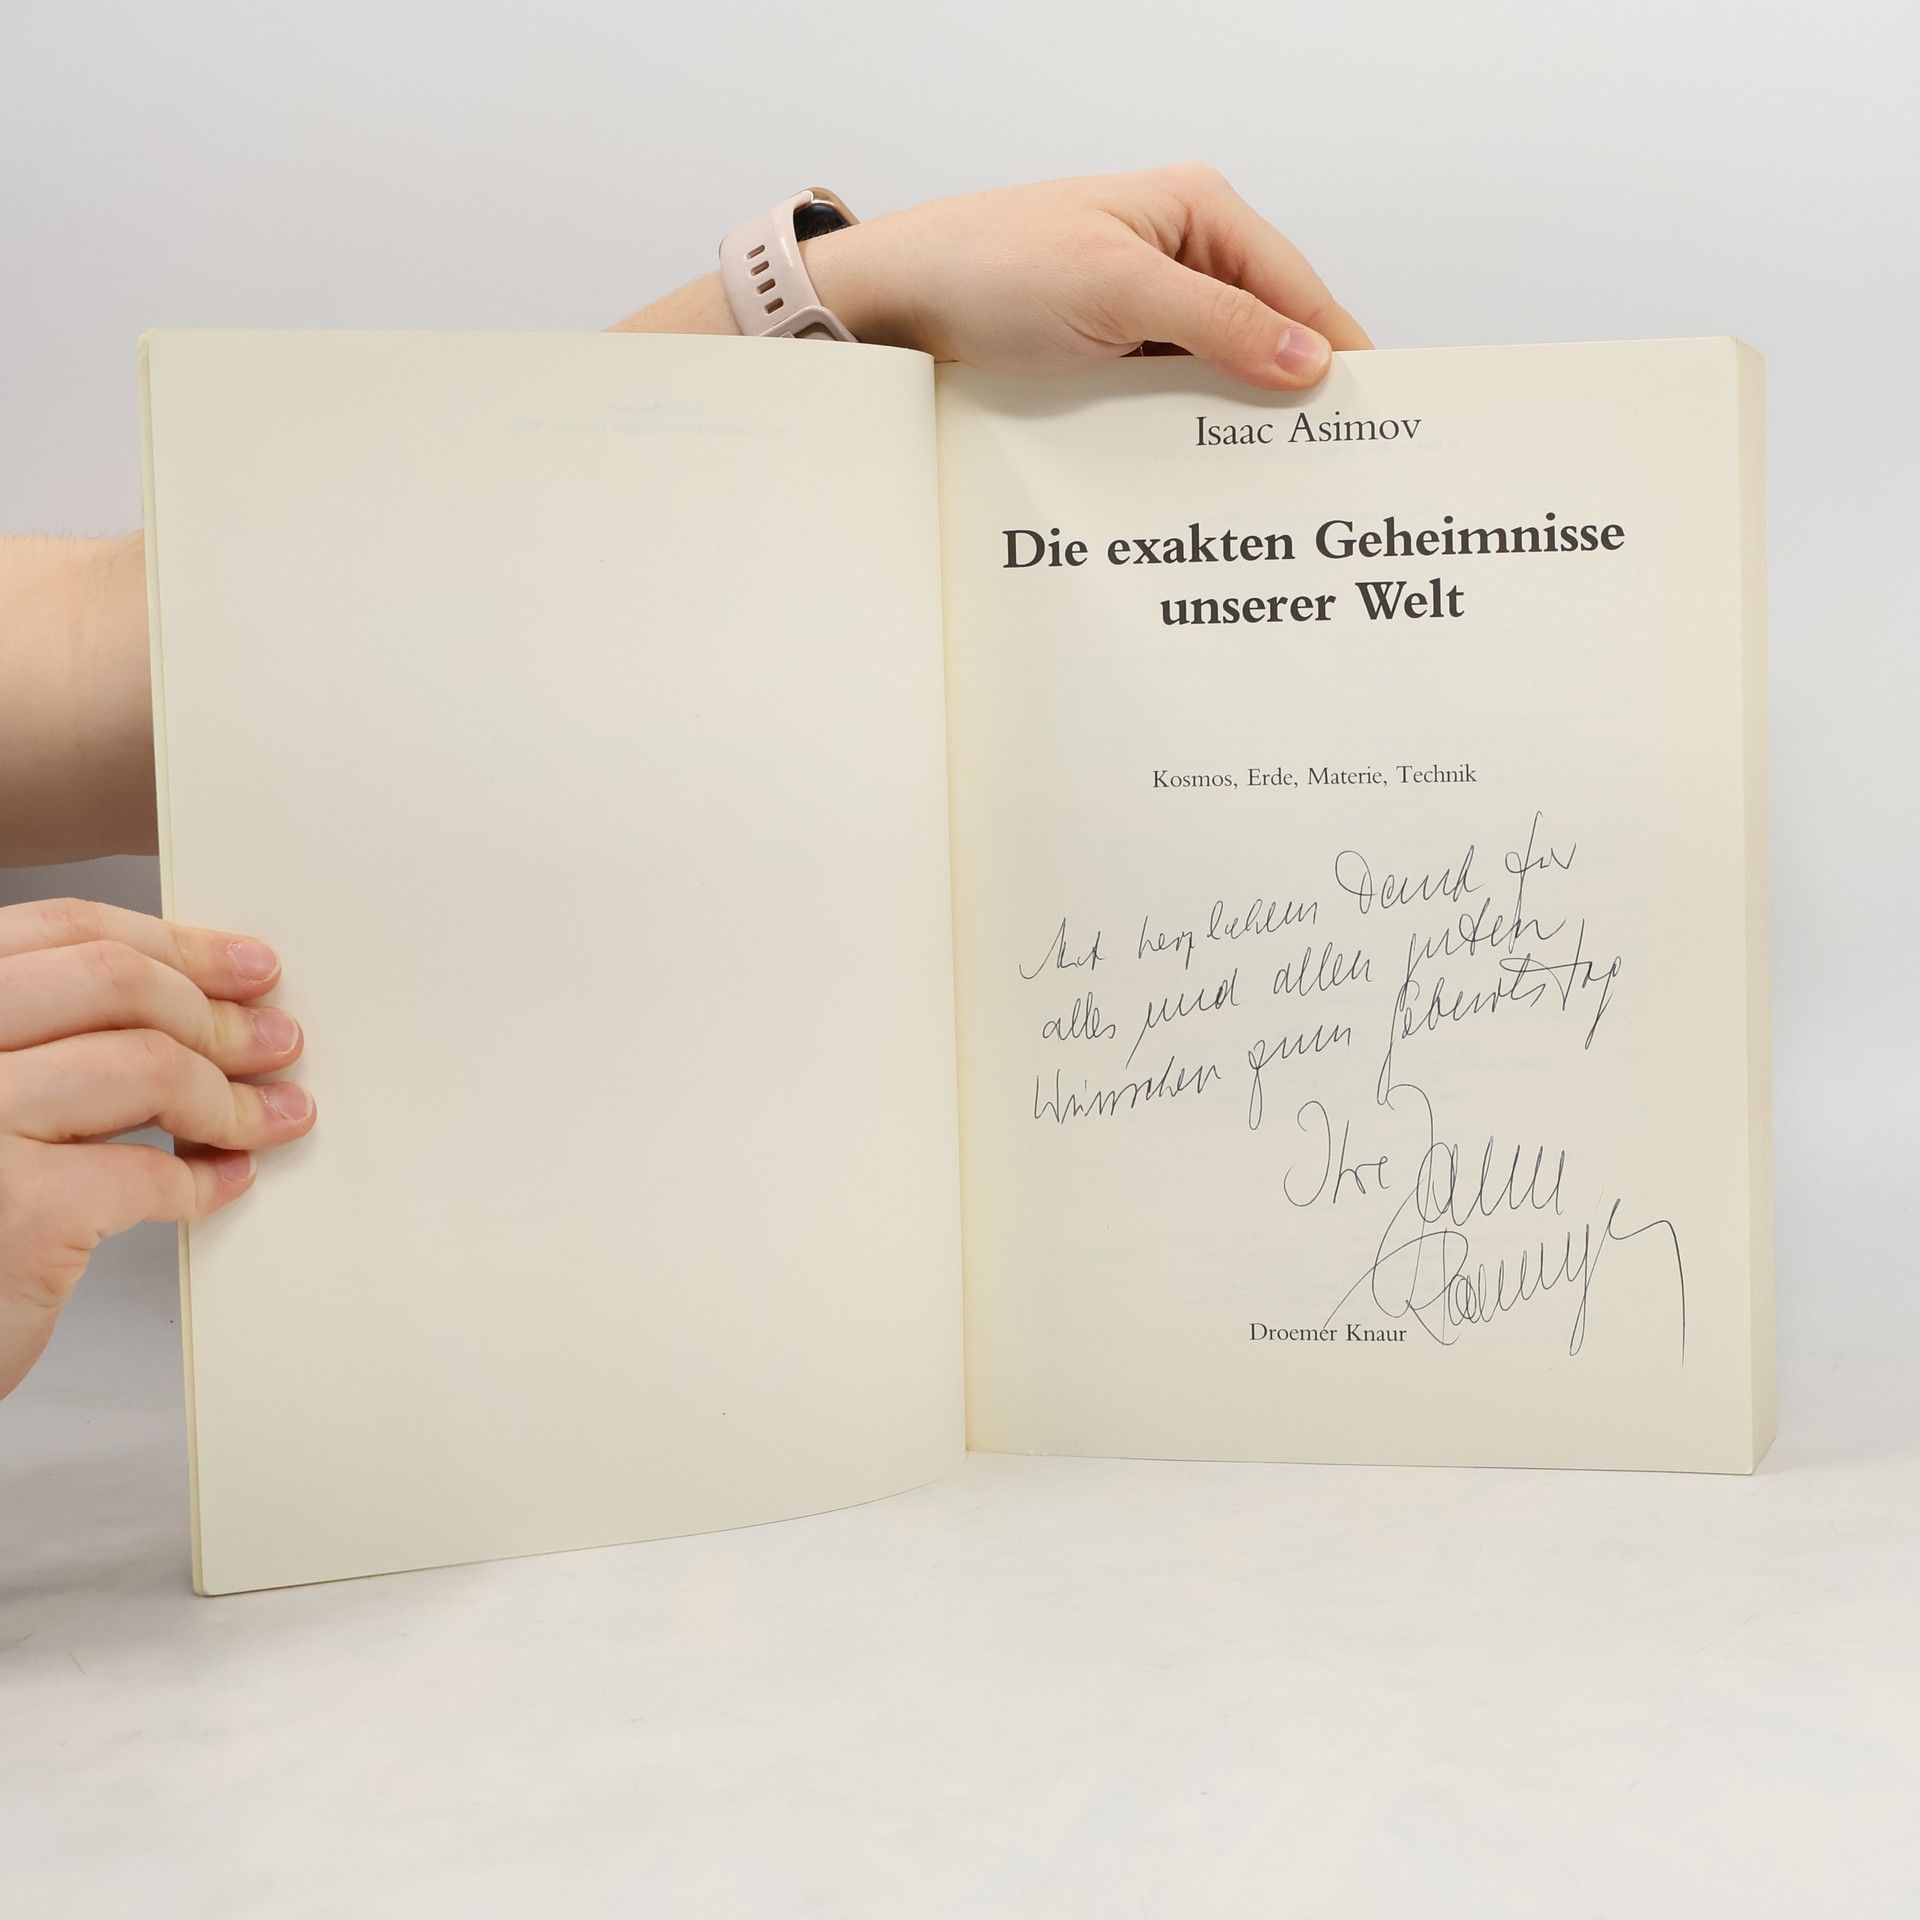 Isaac Asimov
Die exakten Geheimnisse
unserer Welt
Kosmos, Erde, Materie, Technik
Mit herzlichem Dank für
alles und allen guten
Wünschen zum Geburtstag
Ihre
Droemer Knaur